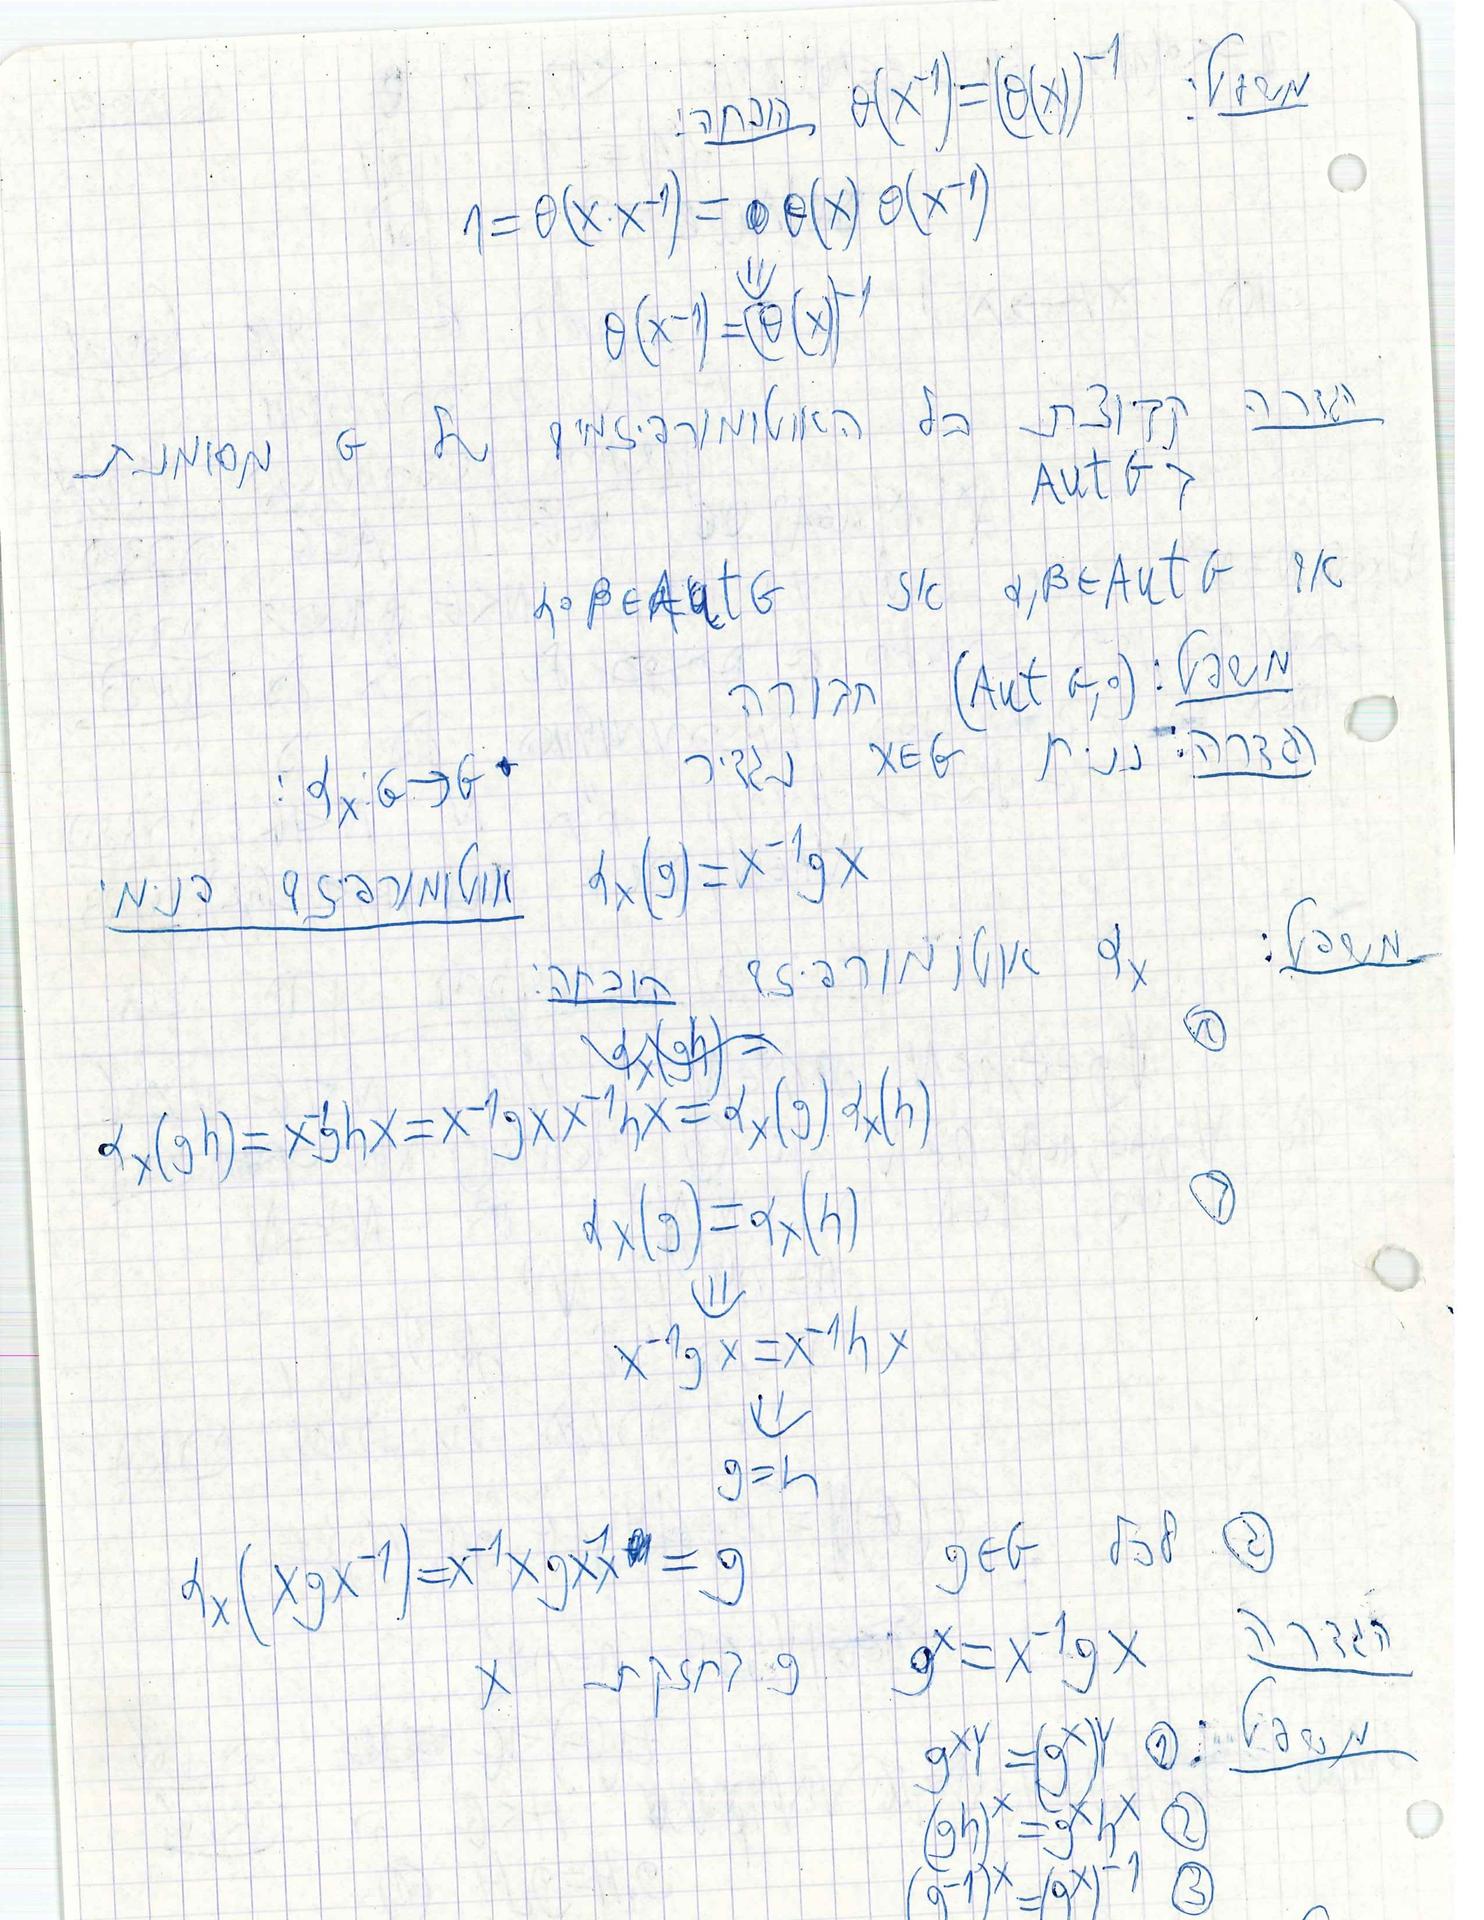 משפט: θ(x⁻¹)=(θ(x))⁻¹ הוכחה:
1=θ(x·x⁻¹)=θ(x)θ(x⁻¹)
⇓
θ(x⁻¹)=(θ(x))⁻¹
הגדרה קבוצת כל האוטומורפיזמים של G מסומנת
ב Aut G
אם α,β∈Aut G אז α∘β∈Aut G
משפט: (Aut G,∘) חבורה
הגדרה: נניח x∈G נגדיר αₓ:G→G :
αₓ(g)=x⁻¹gx אוטומורפיזם פנימי
משפט: αₓ אוטומורפיזם הוכחה:
א αₓ(gh)=
αₓ(gh)=x⁻¹ghx=x⁻¹gxx⁻¹hx=αₓ(g)αₓ(h)
ב αₓ(g)=αₓ(h)
⇓
x⁻¹gx=x⁻¹hx
⇓
g=h
ג לכל g∈G αₓ(xgx⁻¹)=x⁻¹xgx⁻¹x=g
הגדרה gˣ=x⁻¹gx g בחזקת x
משפט: ① gˣʸ=(gˣ)ʸ
② (gh)ˣ=gˣhˣ
③ (g⁻¹)ˣ=(gˣ)⁻¹